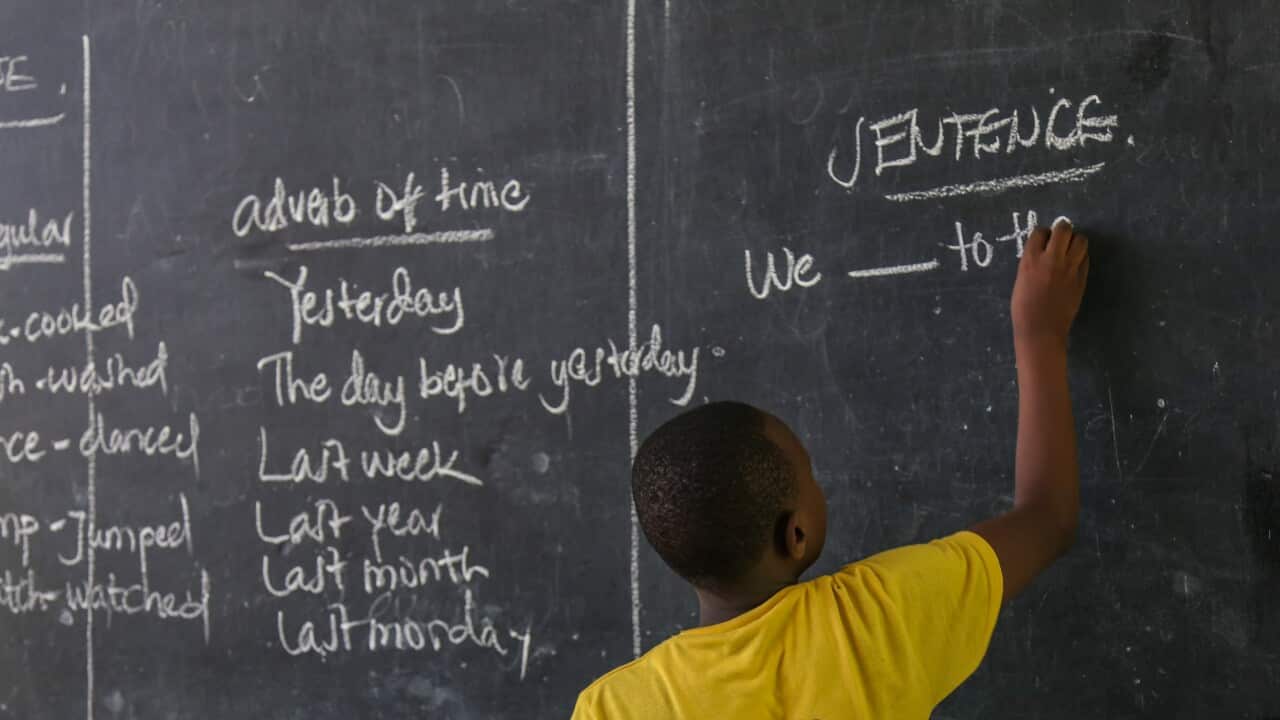 gular
cooked
washed
nce - danced
mp - Jumped
tch - watched
adverb of time
Yesterday
The day before yesterday.
Last week
Last year
Last month
Last monday
SENTENCE.
We ___ to the